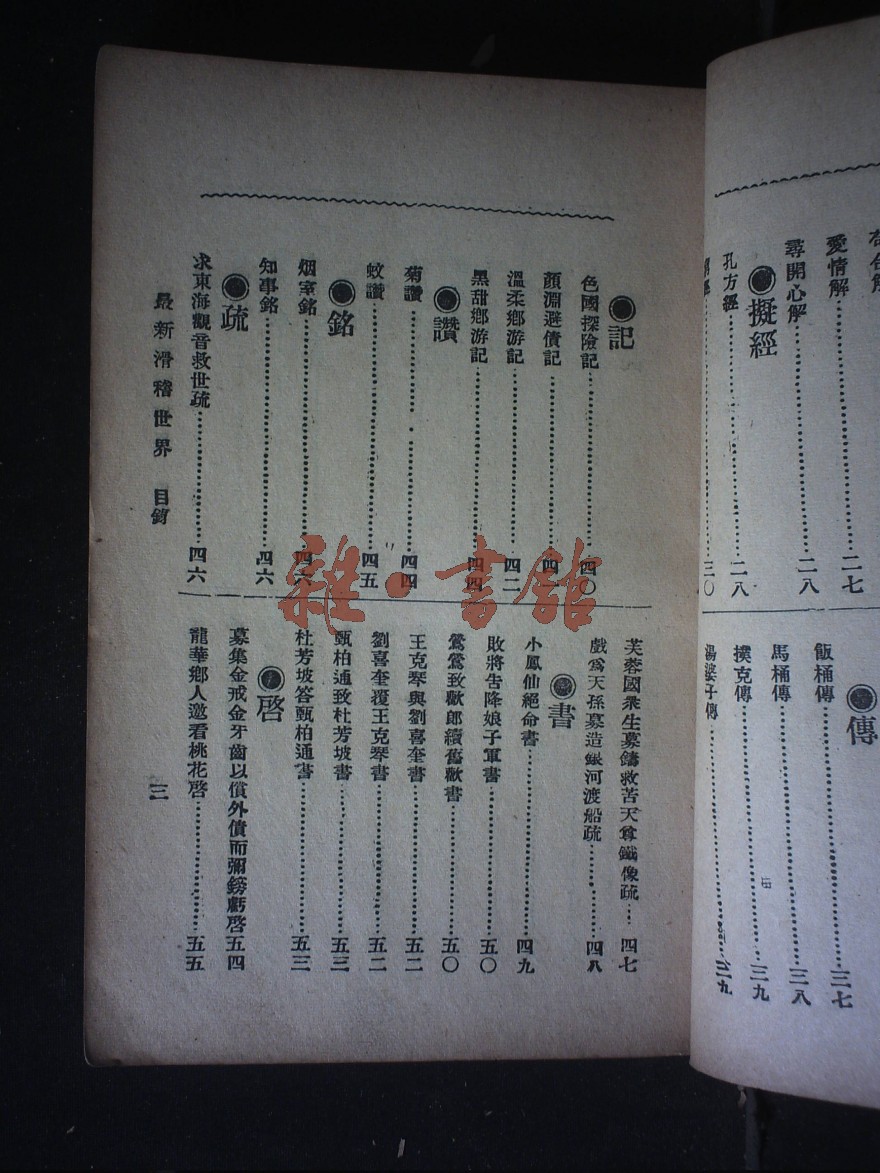 愛情解⋯⋯二七
尋開心解⋯⋯二八
◉擬經
孔方經⋯⋯二八
⋯⋯三〇
◉傳
飯桶傳⋯⋯三七
馬桶傳⋯⋯三八
撲克傳⋯⋯三九
湯婆子傳⋯⋯三九
◉記
色國探險記⋯⋯四〇
顏淵避債記⋯⋯四一
溫柔鄉游記⋯⋯四二
黑甜鄉游記⋯⋯四四
◉讚
菊讚⋯⋯四四
蚊讚⋯⋯四五
◉銘
烟室銘⋯⋯四六
知事銘⋯⋯四六
◉疏
求東海觀音救世疏⋯⋯四六
芙蓉國衆生募鑄救苦天尊鐵像疏⋯⋯四七
戲爲天孫募造銀河渡船疏⋯⋯四八
◉書
小鳳仙絕命書⋯⋯四九
敗將告降娘子軍書⋯⋯五〇
鶯鶯致歡郎續舊歡書⋯⋯五〇
王克琴與劉喜奎書⋯⋯五二
劉喜奎覆王克琴書⋯⋯五二
甄柏通致杜芳坡書⋯⋯五三
杜芳坡答甄柏通書⋯⋯五三
◉啓
募集金戒金牙齒以償外債而彌鎊虧啓五四
龍華鄉人邀看桃花啓⋯⋯五五
最新滑稽世界 目錄
三
雜·書館